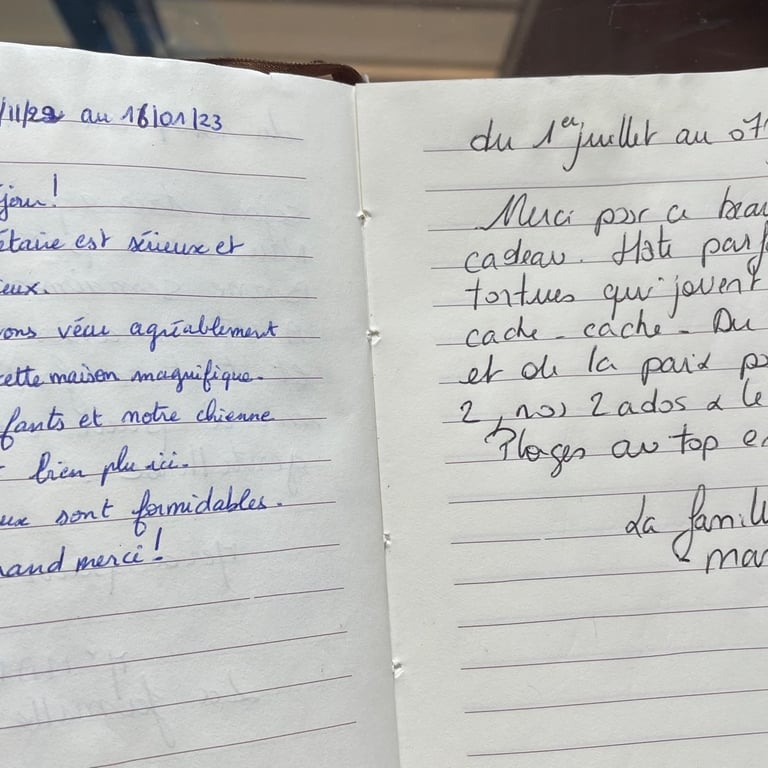 /11/22 au 16/01/23
jour!
étaire est sérieux et
eux.
ons vécu agréablement
cette maison magnifique.
fants et notre chienne
bien plu ici.
ux sont formidables.
and merci!
du 1er juillet au 07
Merci pour ce beau
cadeau. Hôte parf
tortues qui jouent
cache-cache - Du
et de la paix po
2, nos 2 ados & le
Plages au top e
La famill
mar